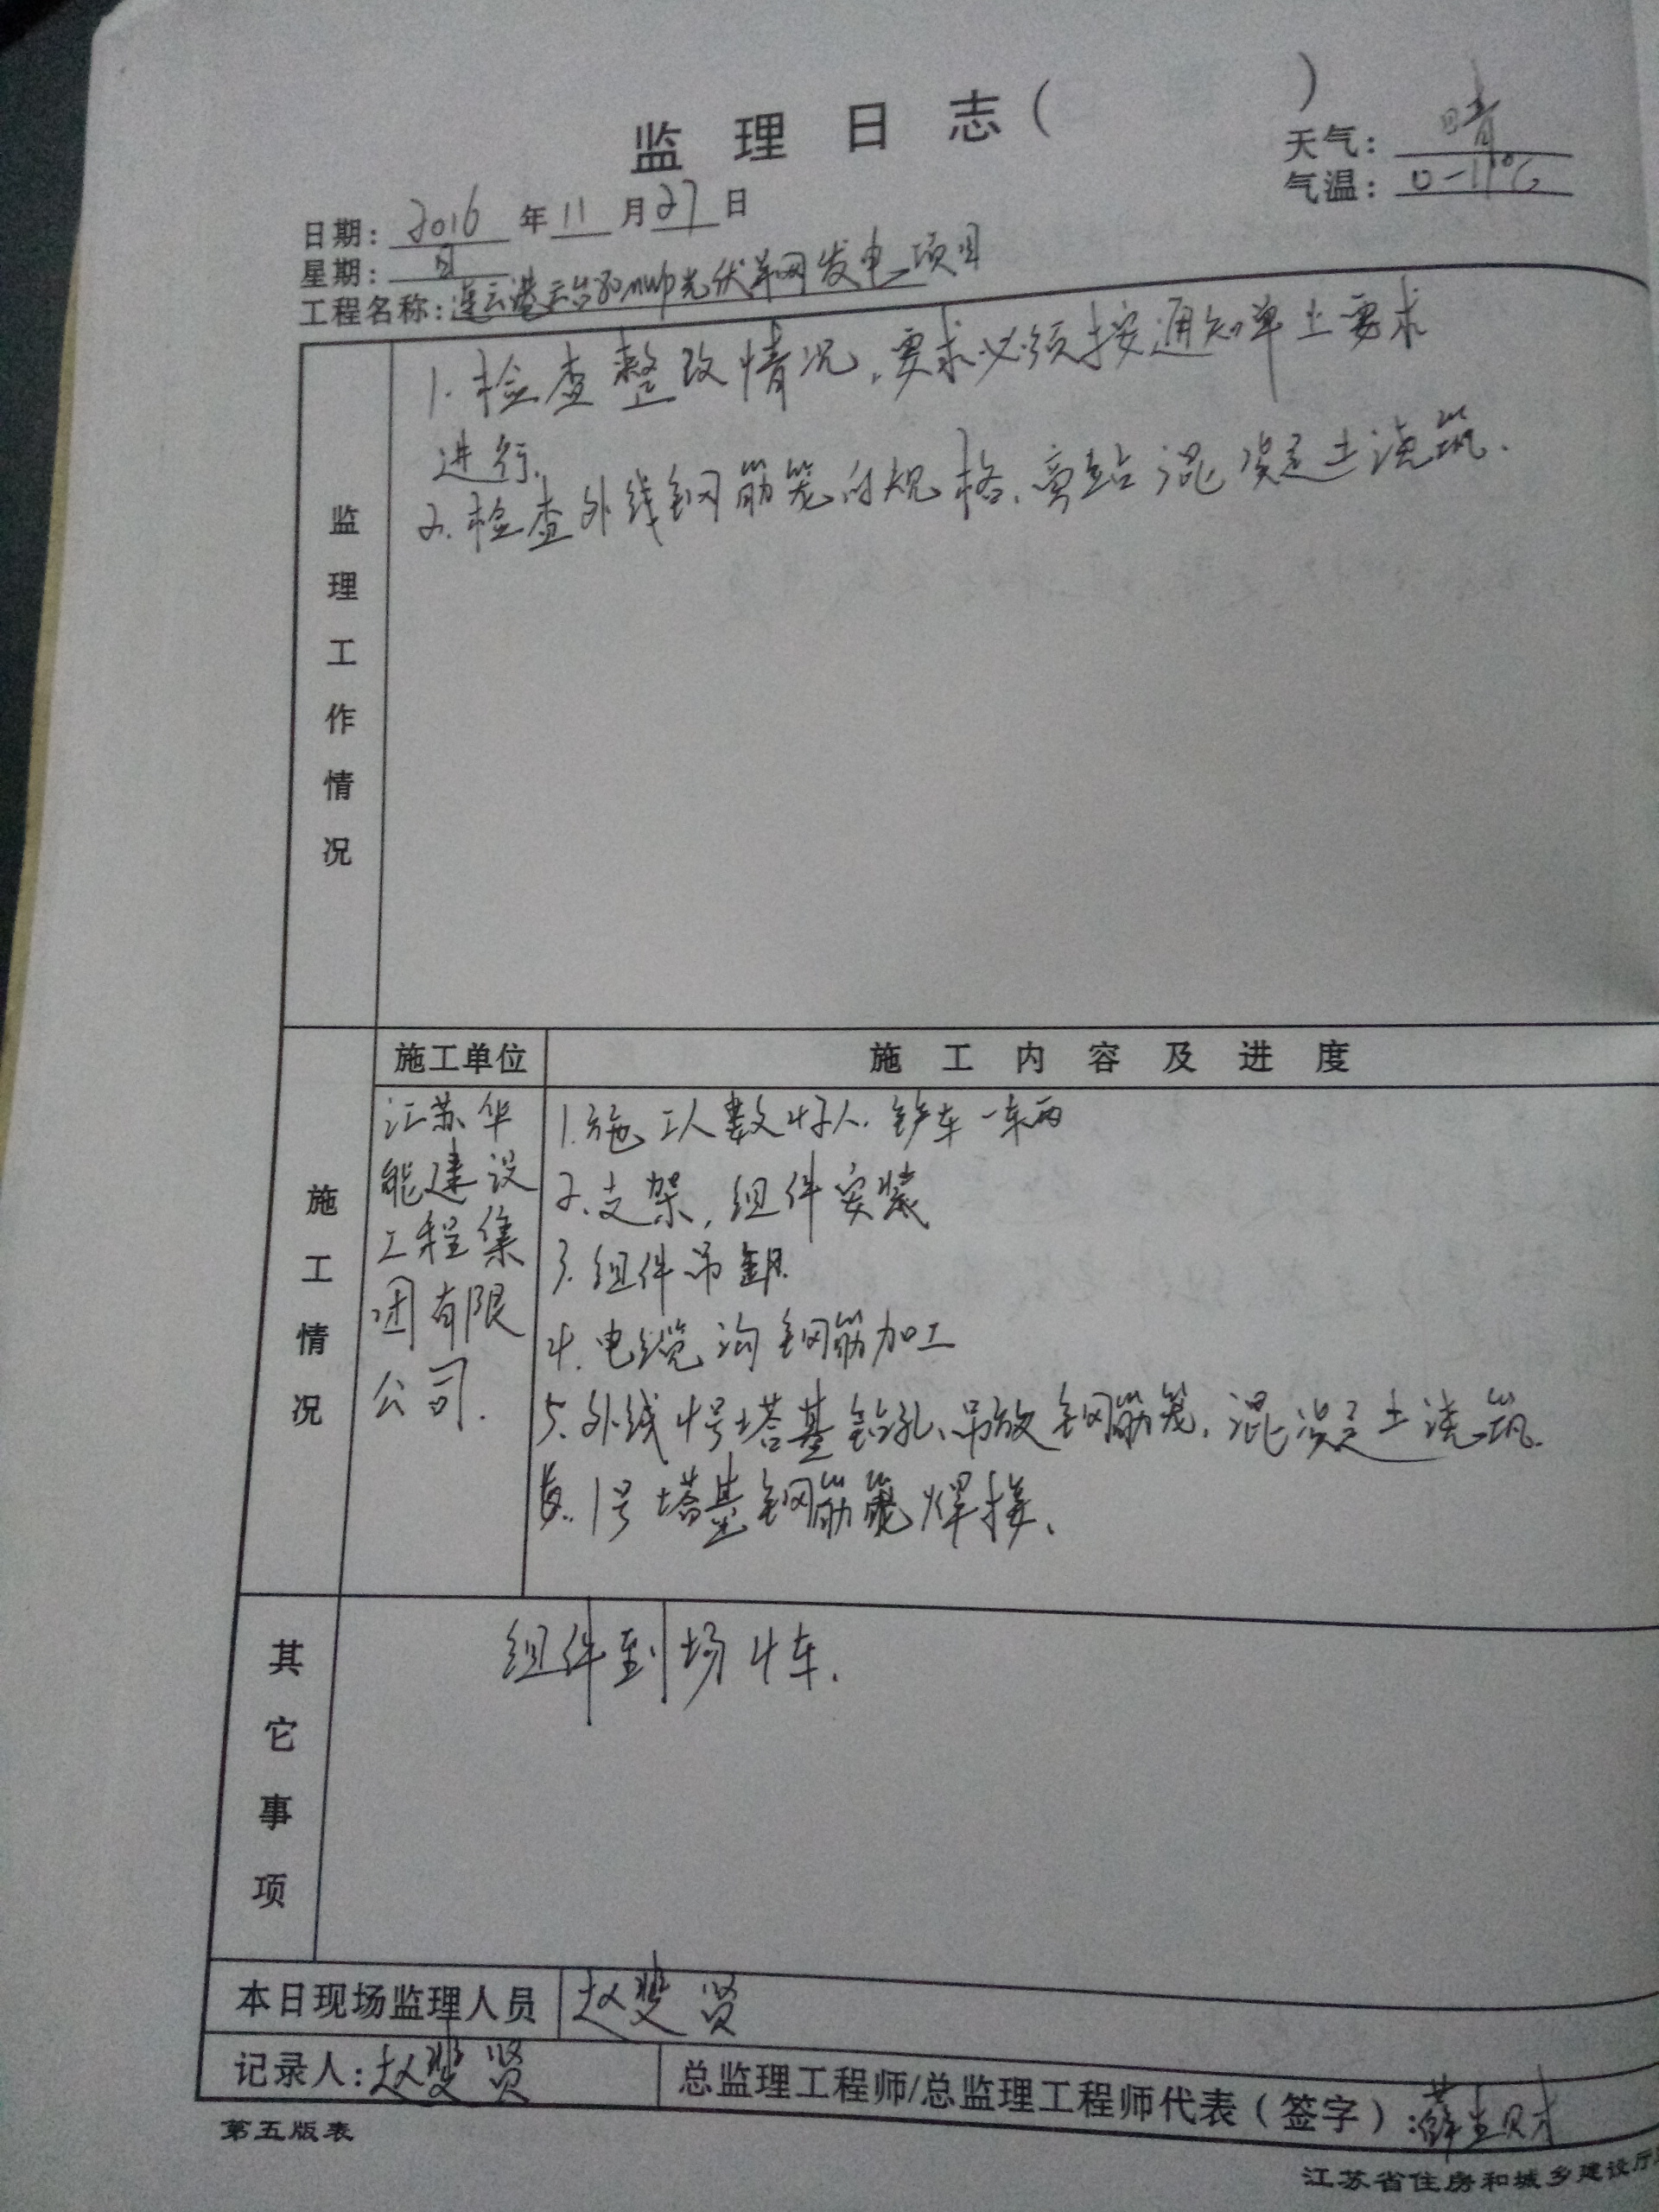 监理日志( )
天气: 晴
气温: 0-11℃
日期: 2016 年 11 月 27 日
星期: 日
工程名称: 连云港云台80mwp光伏并网发电项目
监理工作情况
1. 检查整改情况,要求必须按通知单上要求
进行.
2. 检查外线钢筋笼的规格、旁站混凝土浇筑.
施工情况
施工单位
施工内容及进度
江苏华
能建设
工程集
团有限
公司.
1. 施工人数 人. 铲车一车两
2. 支架, 组件安装
3. 组件吊卸.
4. 电缆沟钢筋加工
5. 外线4号塔基钻孔、吊放钢筋笼, 混凝土浇筑.
1号塔基钢筋笼焊接、
其它事项
组件到场4车.
本日现场监理人员 赵斐贤
记录人: 赵斐贤
总监理工程师/总监理工程师代表(签字):
第五版表
江苏省住房和城乡建设厅